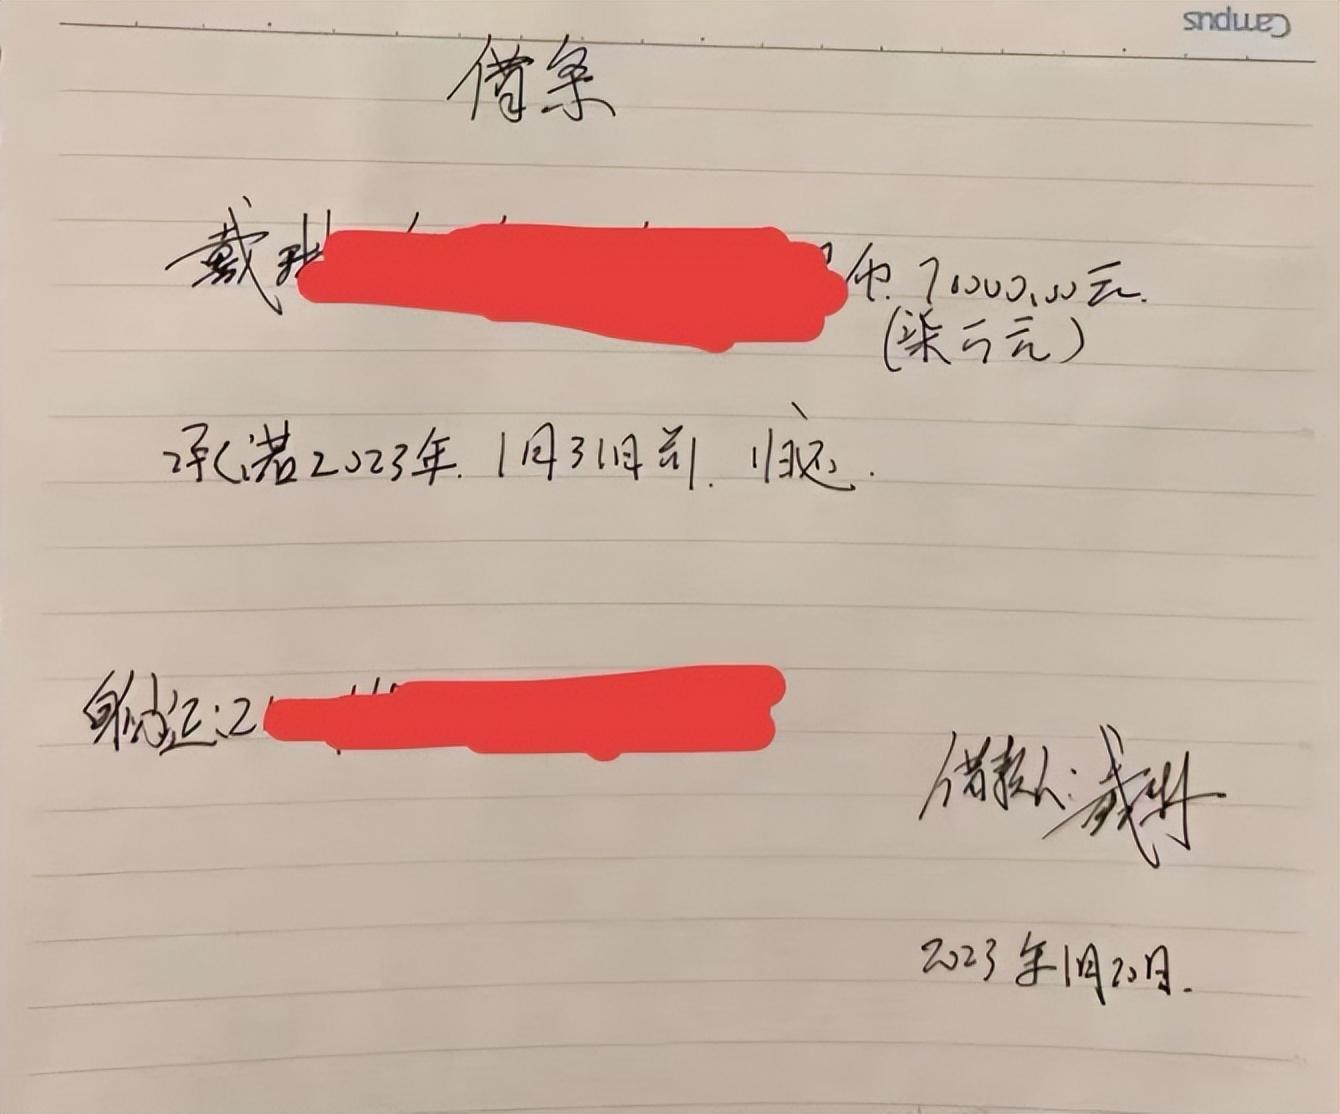 Campus
借条
戴 币.7000.00元.
(柒千元)
承诺2023年.1月31日前.归还.
身份证:2
借款人:戴
2023年1月20日.